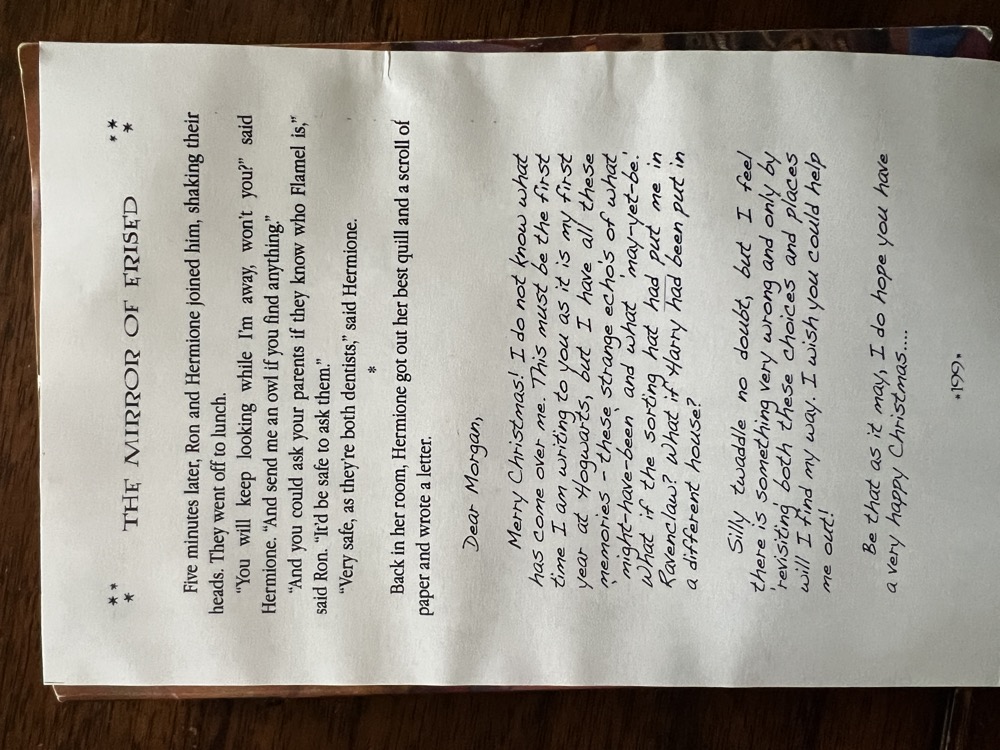 THE MIRROR OF ERISED
Five minutes later, Ron and Hermione joined him, shaking their
heads. They went off to lunch.
“You will keep looking while I’m away, won’t you?” said
Hermione. “And send me an owl if you find anything.”
“And you could ask your parents if they know who Flamel is,”
said Ron. “It’d be safe to ask them.”
“Very safe, as they’re both dentists,” said Hermione.
*
Back in her room, Hermione got out her best quill and a scroll of
paper and wrote a letter.
Dear Morgan,
Merry Christmas! I do not know what
has come over me. This must be the first
time I am writing to you as it is my first
year at Hogwarts, but I have all these
'memories' - these strange echo's of what
'might-have-been' and what 'may-yet-be.'
What if the sorting hat had put me in
Ravenclaw? What if Harry had been put in
a different house?
Silly twaddle no doubt, but I feel
there is something very wrong and only by
'revisiting' both these choices and places
will I find my way. I wish you could help
me out!
Be that as it may, I do hope you have
a very happy Christmas....
*199*